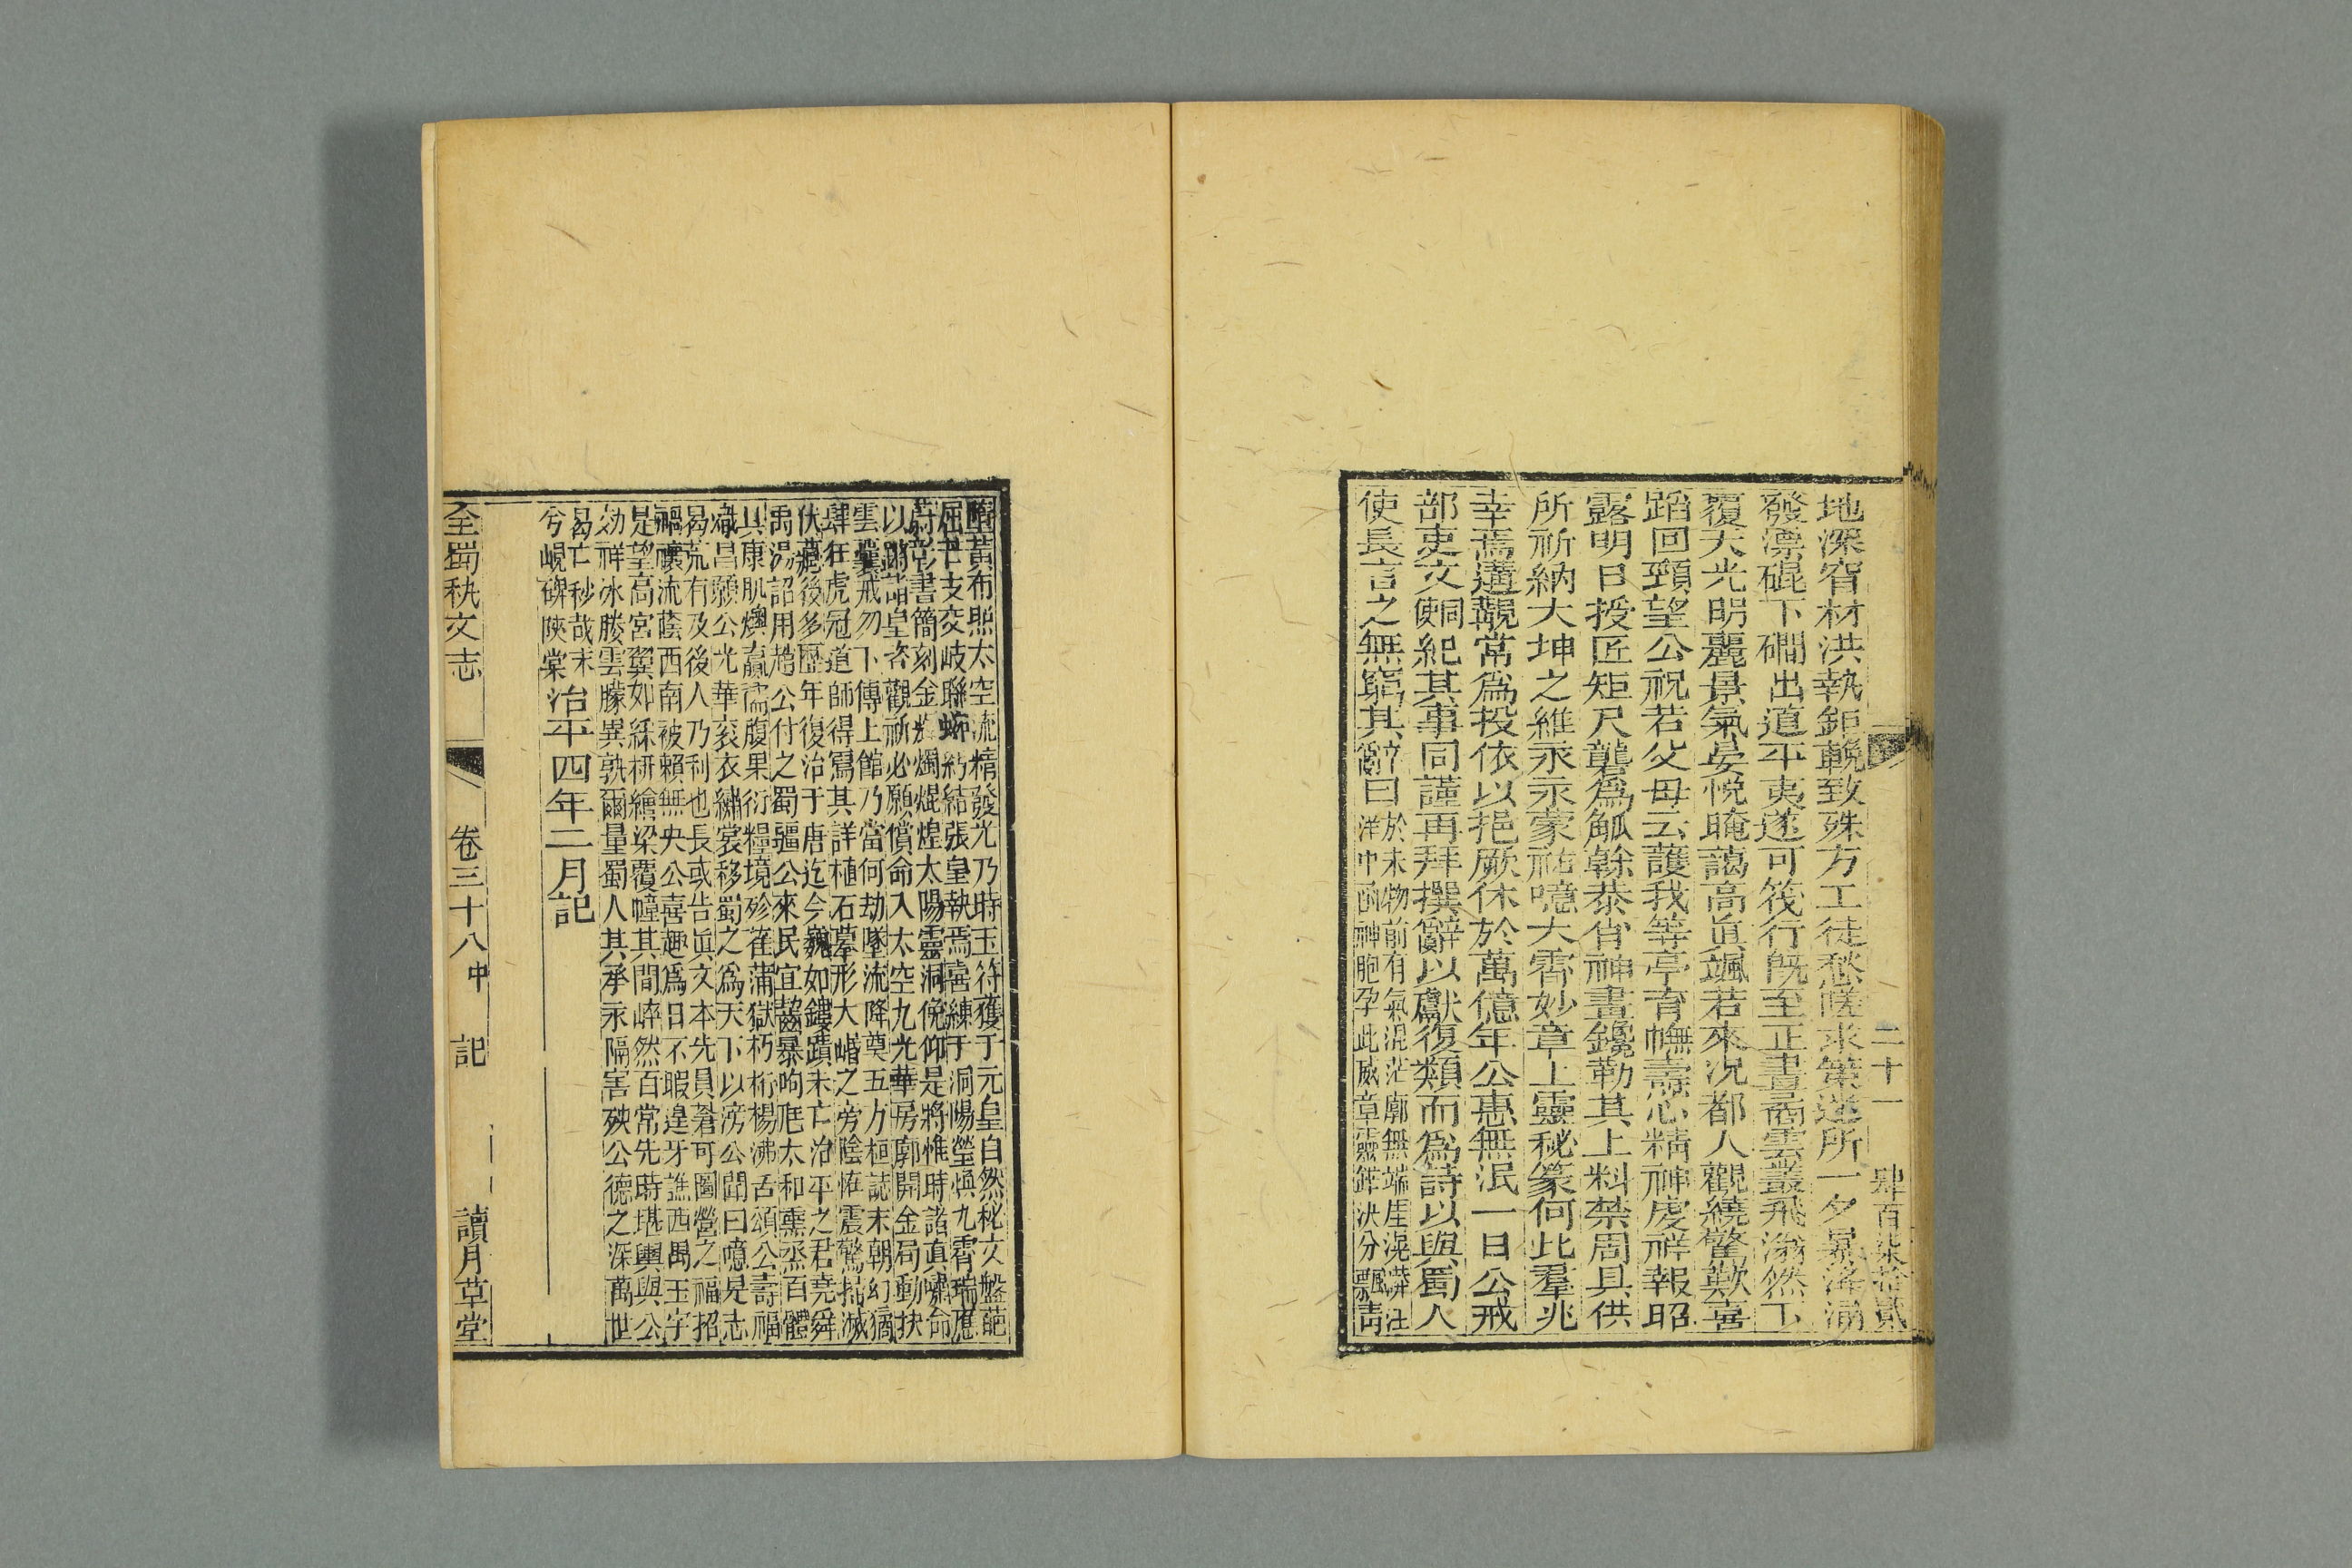 地深窅材洪執鉅輓致殊方工徒愁嗟求策迷所一夕暴洚涌
發漂硍下磵出道平夷遂可筏行旣至正晝矞雲叢飛滃然下
覆天光明麗景氣晏悅晻藹高眞颯若來況都人觀繞驚歎喜
蹈回頸望公祝若父母云護我等亭育幠壽心精神虔祥報昭
露明日授匠矩尺礱爲觚榦恭肖神畫鑱勒其上料禁周具供
所祈納大坤之維永永蒙祐噫大霄妙章上靈秘篆何此羣兆
幸焉遘覩常爲投依以挹厥休於萬億年公惠無泯一日公戒
部吏文同使紀其事同謹再拜撰辭以獻復類而爲詩以與蜀人
使長言之無窮其辭曰於未物前有氣混茫廓無端厓滉漭汪
洋中函神胞孕此威章靈鋅決分飄靑
二十一 肆百柒拾貳
墮黃布煕太空流精發光乃時玉符獲于元皇自然秘文盤葩
屈芒支交岐聯 結張皇執焉喜練于洞陽瑩煥九霄瑞應
蔚彰書簡刻金 燭焜煌太陽靈洞俛仰是將惟時諸眞嘯命
以 諮皇咨觀祈必願償命入太空九光華房廓開金局動抉
雲囊戒勿下傳上館乃當何劫墜流降奠五方桓誌末朝幻猾
肆狂虎冠道師得寫其詳植石摹形大 之旁陰怪震驚 滅
伏藏後多歷年復治于唐迄今巍如鏤蹟未亡治平之君堯舜
禹湯詔用趙公付之蜀疆公來民宜 暴呴尫太和熏烝百體
具康肌燠羸 腹果衍糧境殄萑蒲獄朽桁楊沸舌頌公壽福
熾昌願公光華衮衣繡裳移蜀之爲天下以滂公聞曰噫是志
曷荒有及後人乃利也長或告眞文本先員碁可圖營之福招
禍禳流蔭西南被賴無央公喜趣爲日不暇遑牙譙西禺玉宇
是望高宮翼如綵栟繪梁覆幢其間崪然百常先時堪輿與公
効祥冰媵雲朦異孰爾量蜀人其承永隔害殃公德之深萬世
曷亡秒哉末
兮峴碑陝棠治平四年二月記
全蜀秇文志 卷三十八中 記 讀月草堂